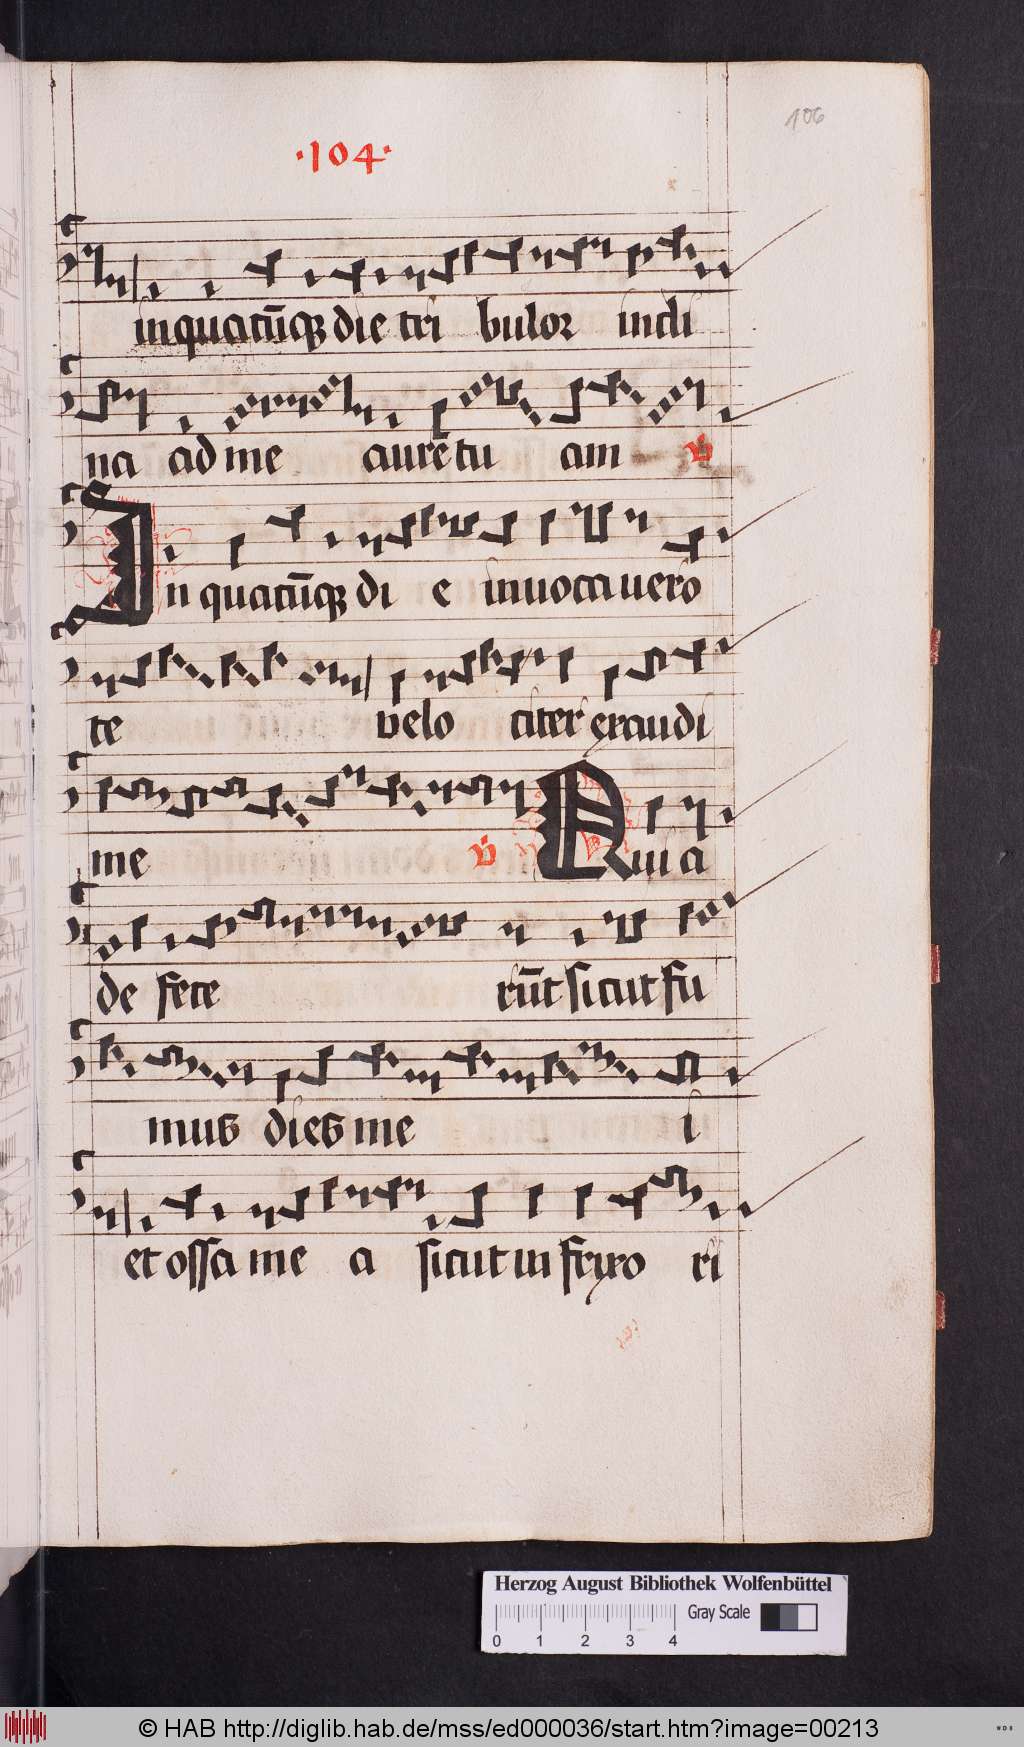 106
·104·
inquacūq₃ die tri bulor incli
na ad me aurē tu am ℣
In quacūq₃ di e invocavero
te velo citer exaudi
me ℣ Qui a
de fece rūt sicut fu
mus dies me i
et ossa me a sicut in frixo ri
Herzog August Bibliothek Wolfenbüttel
Gray Scale
0 1 2 3 4
© HAB http://diglib.hab.de/mss/ed000036/start.htm?image=00213